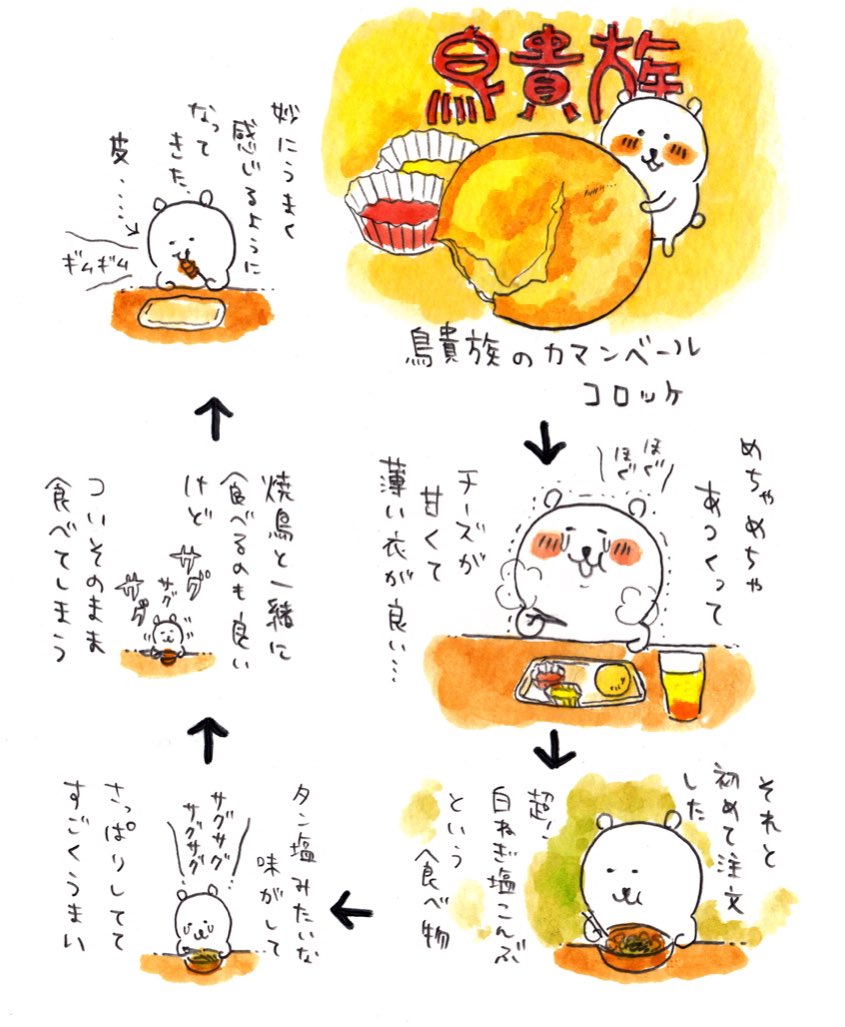 鳥貴族
鳥貴族のカマンベール
コロッケ
めちゃめちゃ
あつくって
ほぐ
ほぐ
チーズが
甘くて
薄い衣が良い…
それと
初めて注文
した
超！
白ねぎ塩こんぶ
という
食べ物
タン塩みたいな
味がして
サグサグ
サグサグ
さっぱりしてて
すごくうまい
焼鳥と一緒に
食べるのも良い
けど
サグ
サグ
サグ
ついそのまま
食べてしまう
妙にうまく
感じるように
なって
きた、
皮……
ギムギム